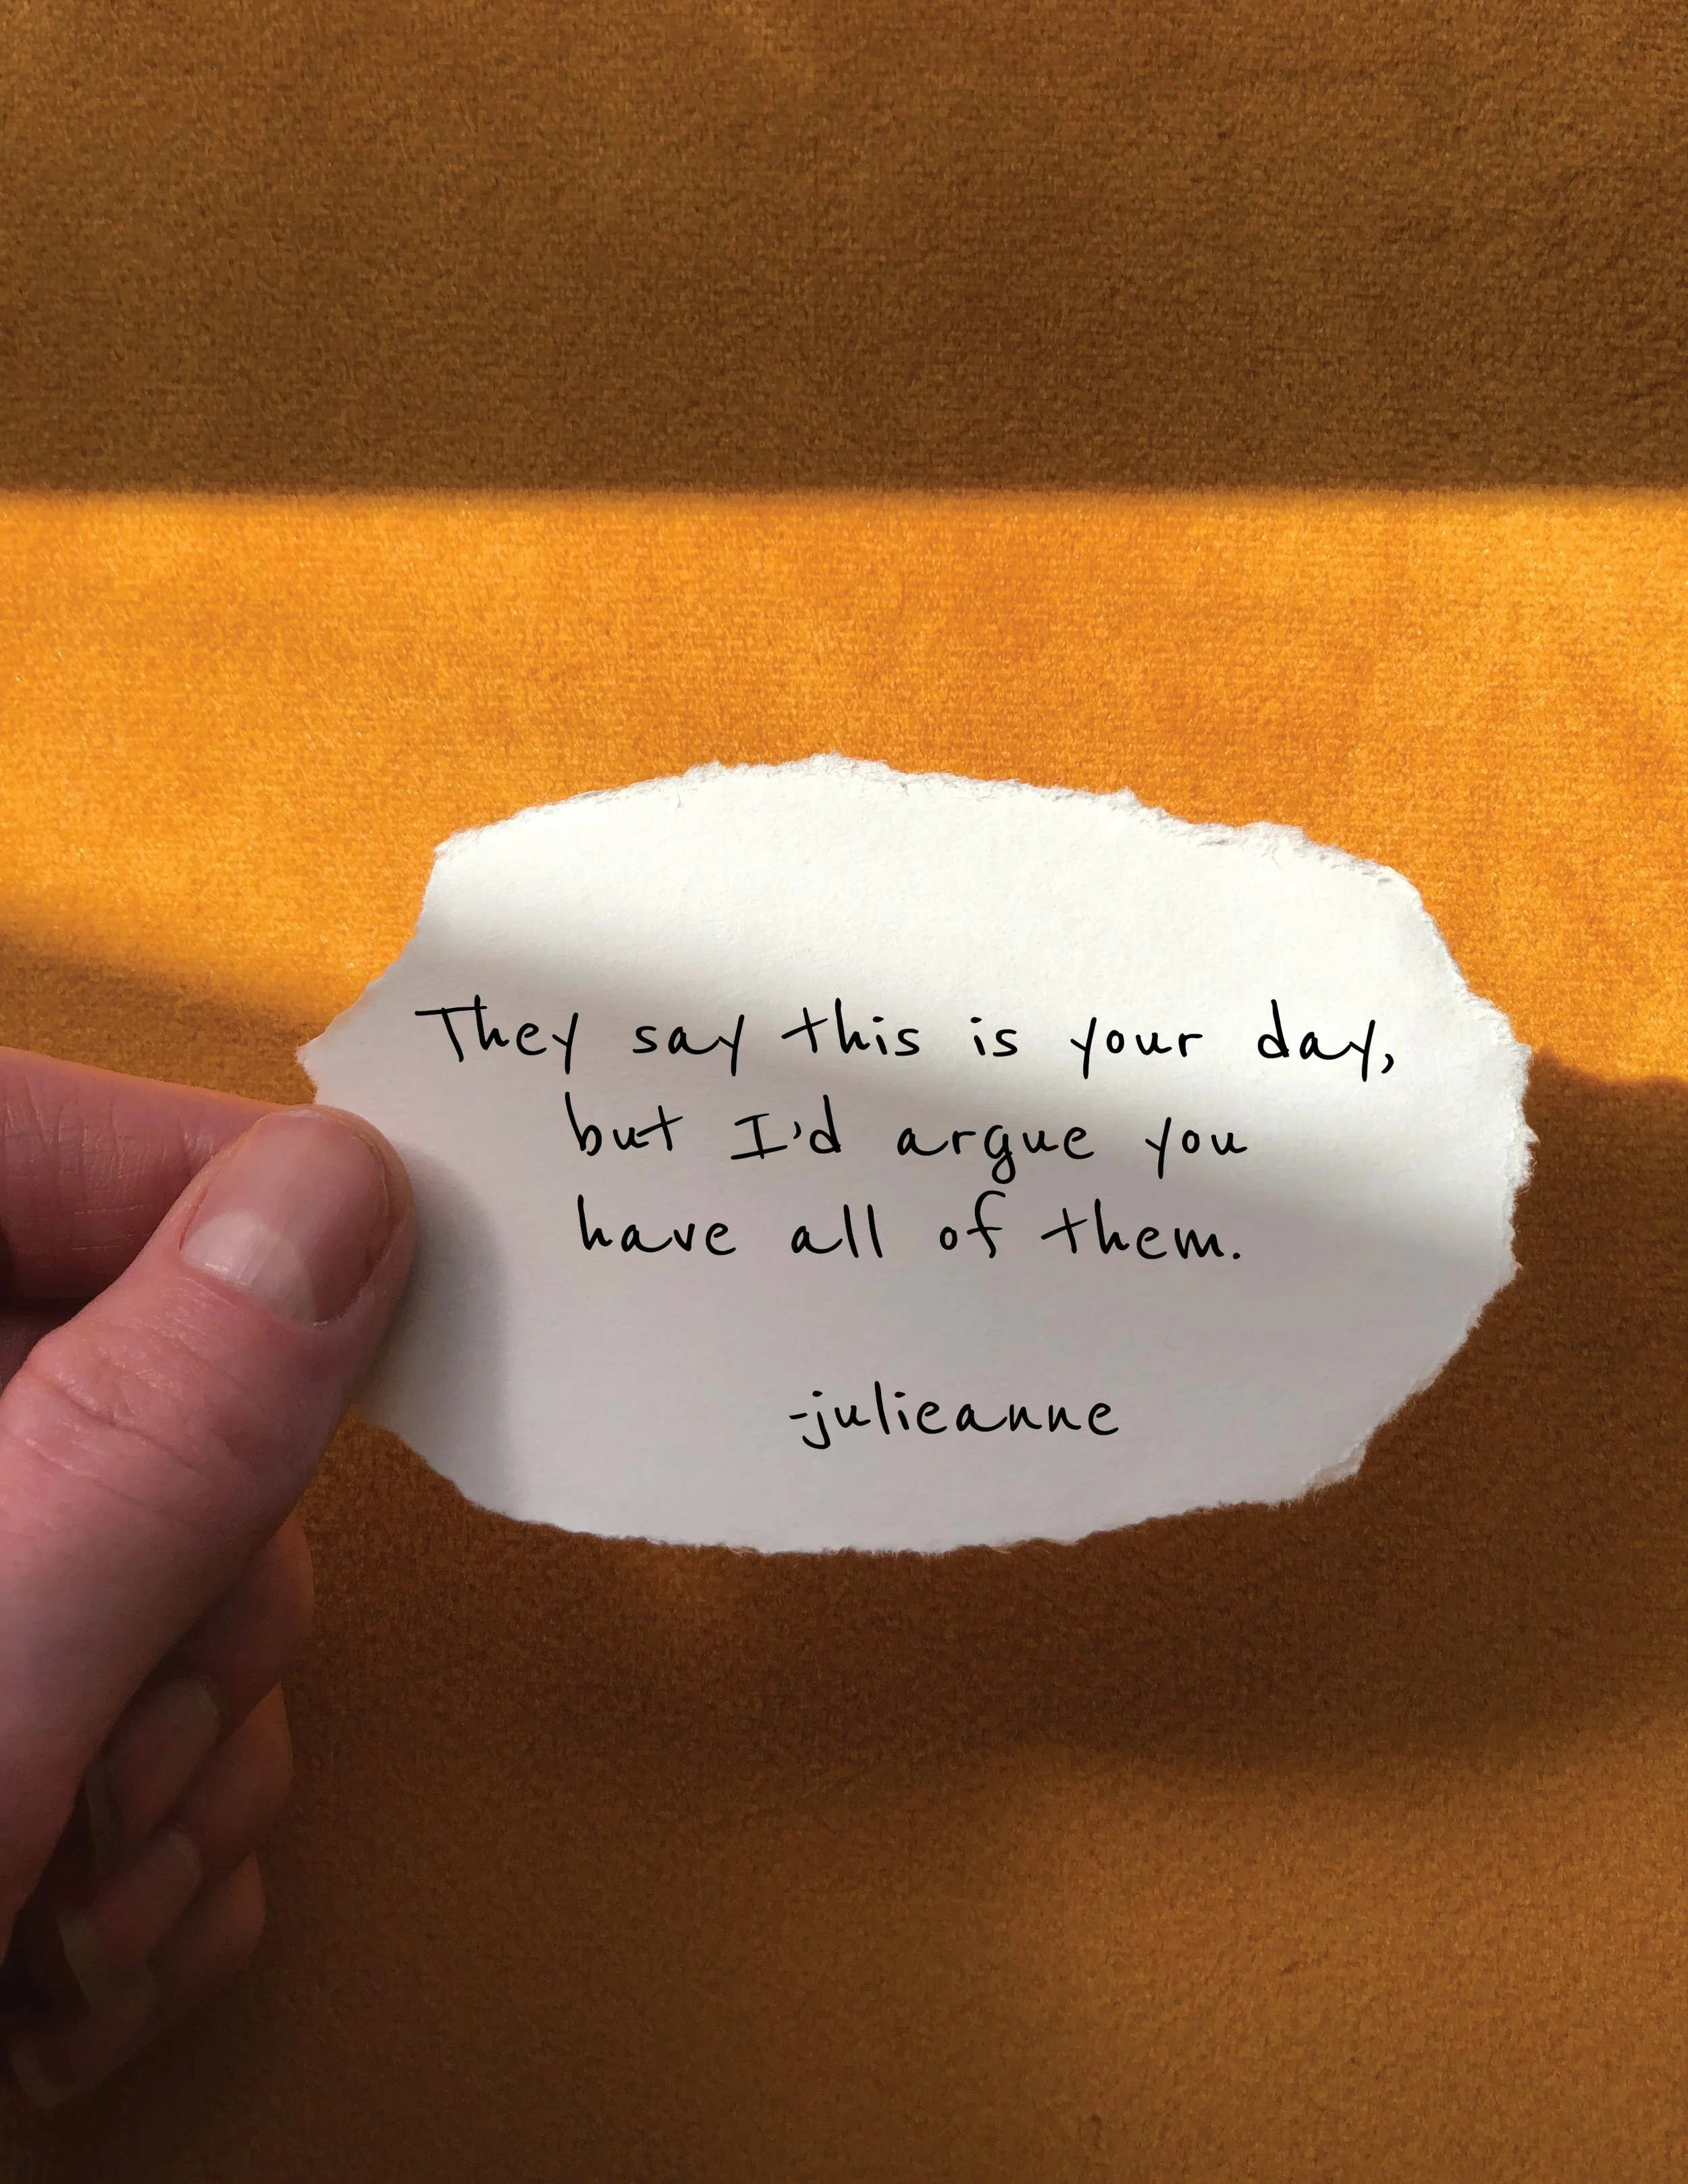 They say this is your day,
but I'd argue you
have all of them.
-julieanne